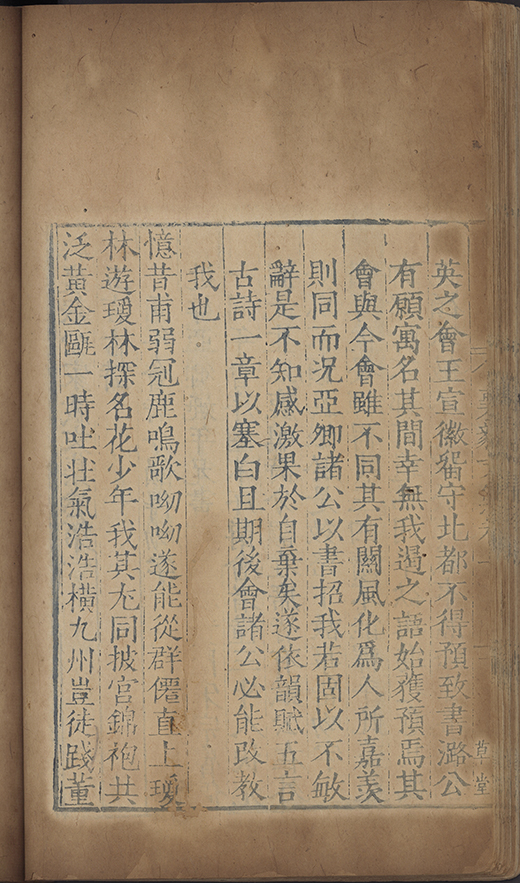 英之會王宣徽畱守北都不得預致書潞公
有願寓名其間幸無我遏之語始獲預焉其
會與今會雖不同其有關風化爲人所嘉羨
則同而況亞卿諸公以書招我若固以不敏
辭是不知感激果於自棄矣遂依韻賦五言
古詩一章以塞白且期後會諸公必能改教
我也
憶昔甫弱冠鹿鳴歌呦呦遂能從群僊直上瓊
林遊瓊林探名花少年我其尤同披宮錦袍共
泛黃金甌一時吐壯氣浩浩橫九州豈徒踐董
草堂